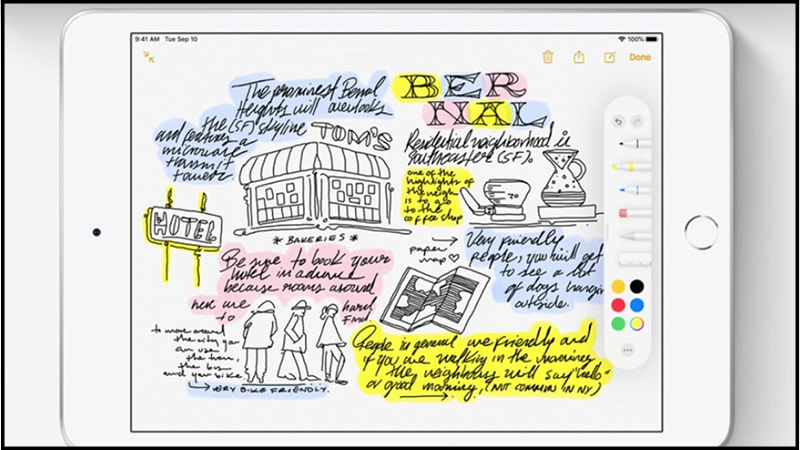 9:41 AM Tue Sep 10
100%
Done
The prominent Bernal
Heights will overlooks
the (SF) skyline
and features a
microwave
transmit
tower.
BER
NAL
TOM'S
Residential neighborhood is
southeastern (SF).
one of the
highlights of
the neigh
is to go
to the
coffee shop
20
HOTEL
* BAKERIES *
paper
map
Very friendly
people, you will get
to see a lot
of dogs hangin
outside.
Be sure to book your
hotel in advanced
because rooms around
here are
to
hard
find.
to move around
the city you
can use
the train,
the bus
and your bike
VERY BIKE FRIENDLY.
People in general are friendly and
if you are walking in the mornings
the neighbors will say "hello"
or good morning, (NOT COMMON IN NY)